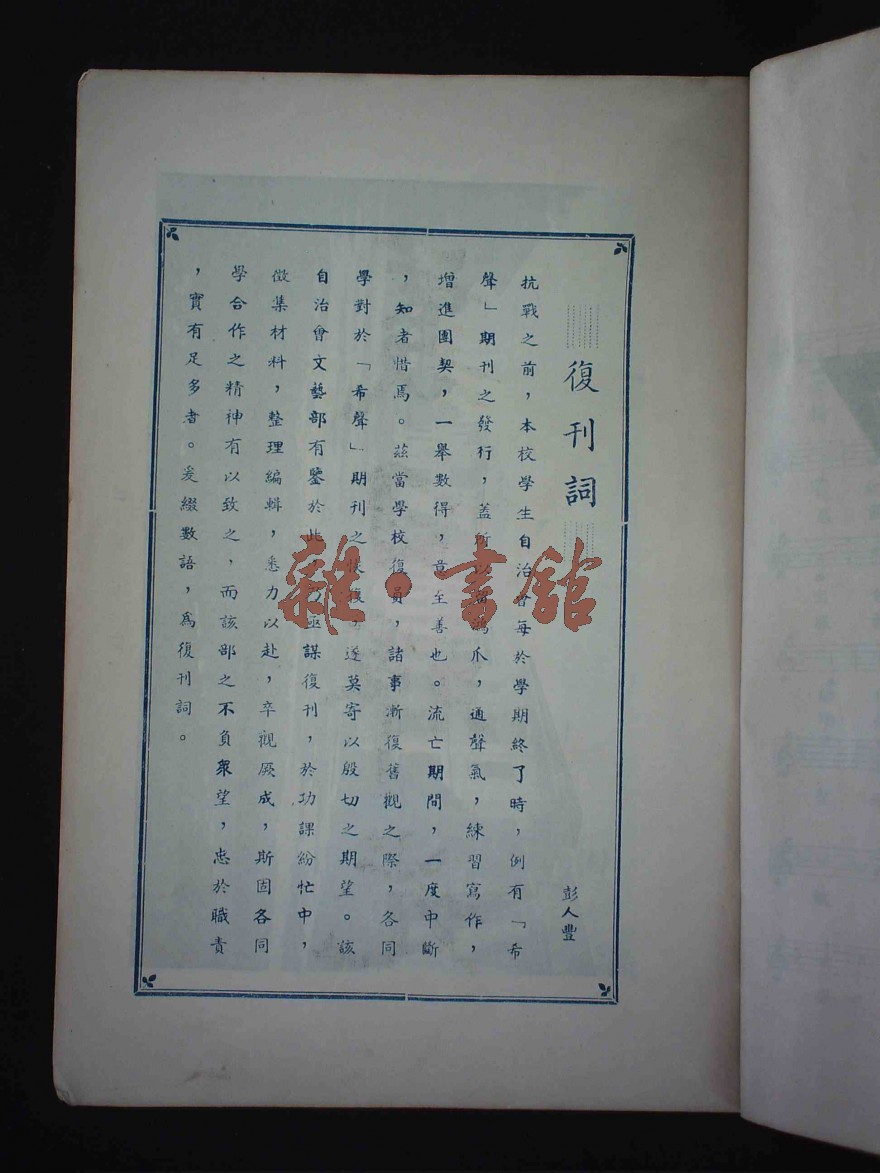 復刊詞
彭人豐
抗戰之前，本校學生自治會每於學期終了時，例有「希
聲」期刊之發行，蓋所以留鴻爪，通聲氣，練習寫作，
增進團契，一舉數得，意至善也。流亡期間，一度中斷
，知者惜焉。茲當學校復員，諸事漸復舊觀之際，各同
學對於「希聲」期刊之恢復，遂莫寄以殷切之期望。該
自治會文藝部有鑒於此，亟謀復刊，於功課紛忙中，
徵集材料，整理編輯，悉力以赴，卒觀厥成，斯固各同
學合作之精神有以致之，而該部之不負衆望，忠於職責
，實有足多者。爰綴數語，爲復刊詞。
雜·書館